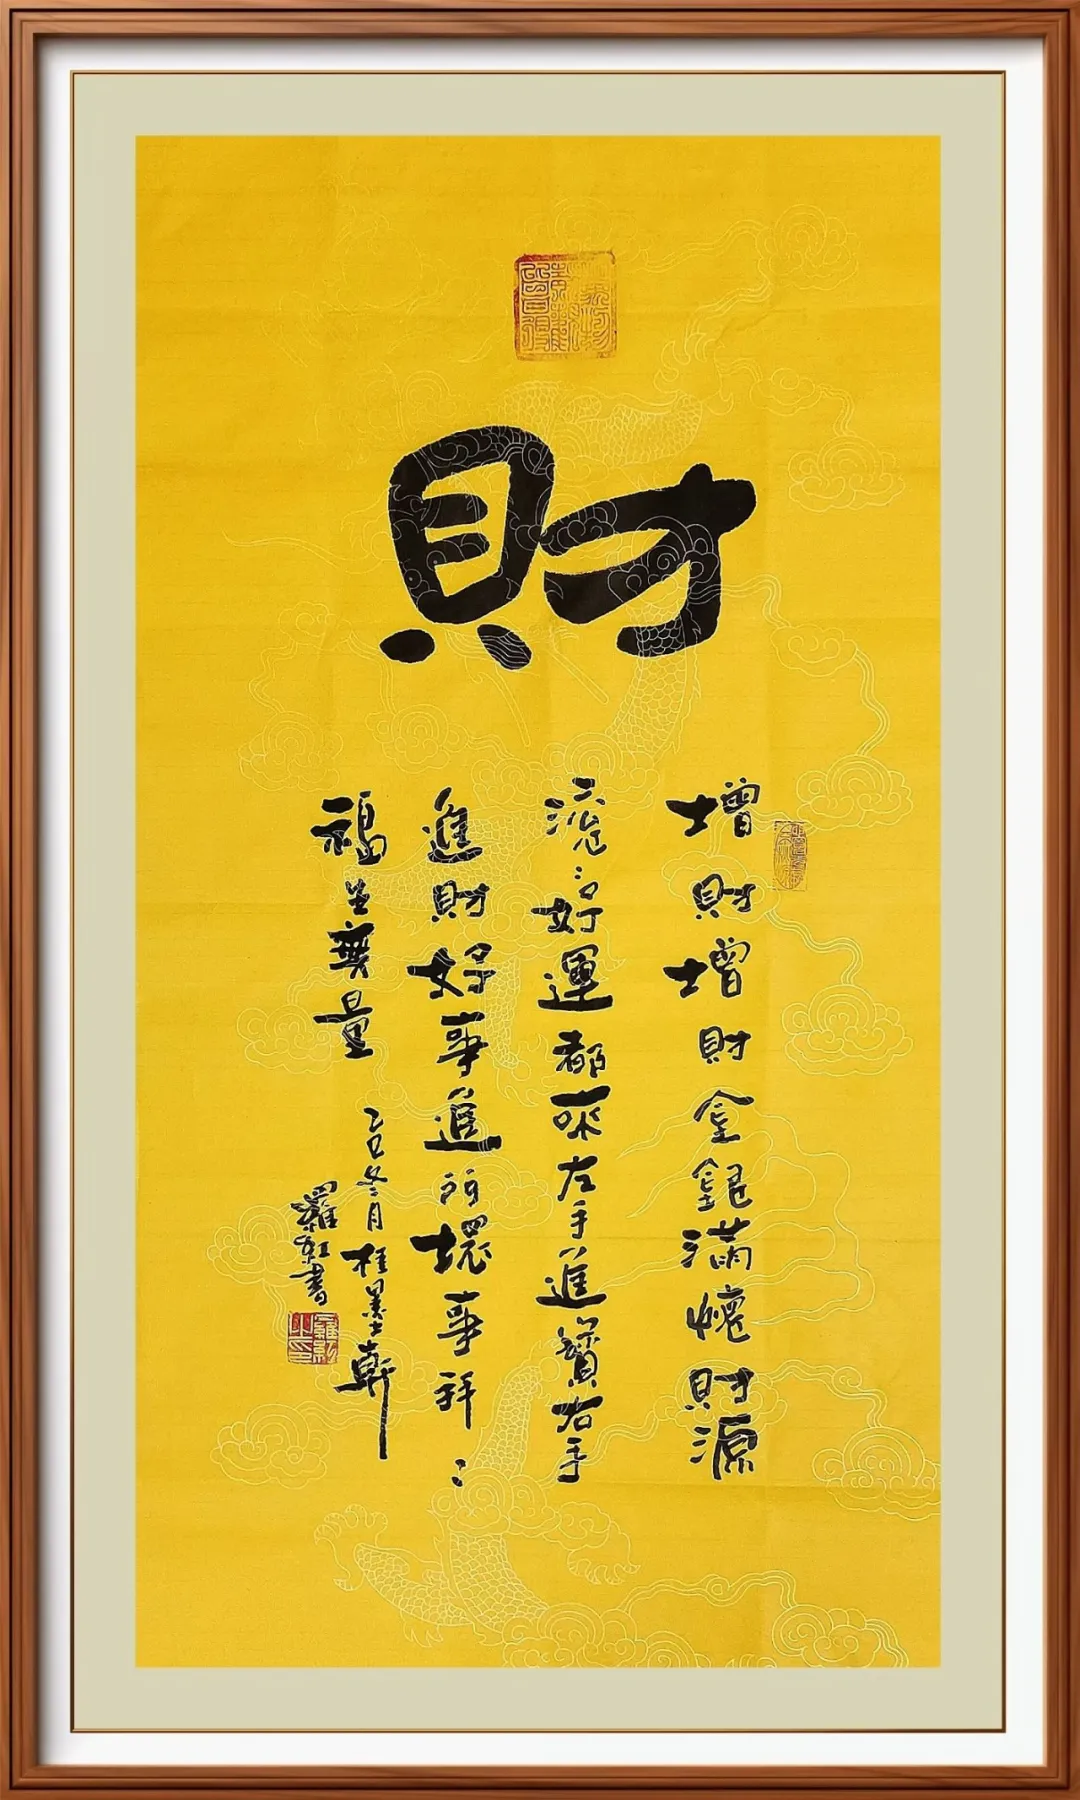 財
增財增財金銀滿懷財源
滾〻好運都來左手進寶右手
進財好事進所環事祥〻
福生無量
乙巳冬月桂墨軒
羅紅書